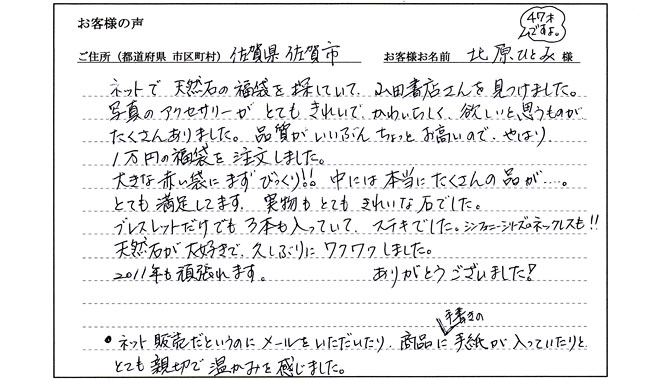 お客様の声
47才ですよ。
ご住所（都道府県 市区町村） 佐賀県佐賀市 お客様お名前 北原ひとみ 様
ネットで天然石の福袋を探していて、山田書店さんを見つけました。
写真のアクセサリーがとてもきれいで、かわいらしく、欲しいと思うものが
たくさんありました。品質がいいぶんちょっとお高いので、やはり、
1万円の福袋を注文しました。
大きな赤い袋にまずびっくり!! 中には本当にたくさんの品が…。
とても満足してます。実物もとてもきれいな石でした。
ブレスレットだけでも3本も入っていて、ステキでした。シンフォニーシリーズのネックレスも!!
天然石が大好きで、久しぶりにワクワクしました。
2011年も頑張れます。 ありがとうございました!
手書きの
• ネット販売だというのにメールをいただいたり、商品に手紙が入っていたりと
とても親切で温かみを感じました。